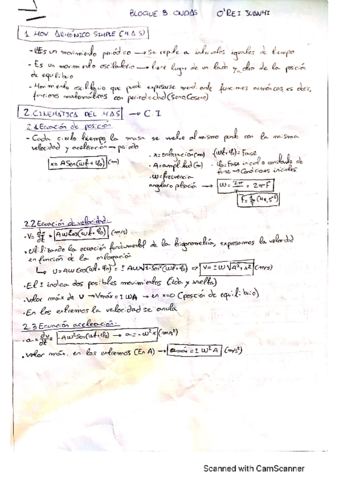 BLOQUE B ONDAS
1. MOV. ARMÓNICO SIMPLE (M.A.S)
- Es un movimiento periódico → Se repite a intervalos iguales de tiempo
- Es un movimiento oscilatorio → tiene lugar de un lado y otro de la posición de equilibrio
- Movimiento oscilatorio que puede expresarse mediante funciones armónicas es decir,
funciones matemáticas con periodicidad (Seno Coseno)
2. CINEMÁTICA DEL MAS → C.I
2.1 Ecuación de posición
- Cada cierto tiempo la masa se vuelve al mismo punto con la misma
velocidad y aceleración → periodo
x = A Sen(wt + φ₀) (m)
x = elongación (m)
A = amplitud (m)
(wt+φ₀) = Fase
φ₀ = Fase inicial o constante de
fase → Condiciones iniciales
W = frecuencia
angular o pulsación → W = 2π/T = 2πF
2.2 Ecuación de velocidad
- V = dx/dt = A W Cos(wt + φ₀) (m/s)
- Utilizando la ecuación fundamental de la trigonometría, expresamos la velocidad
en función de la elongación
- El ± indica dos posibles movimientos (ida y vuelta)
- Valor máx de V → Vmáx = ± WA → en x=0 (posición de equilibrio)
- En los extremos la velocidad se anula
2.3 Ecuación aceleración
- a = dv/dt = -A W² Sen(wt + φ₀) → a = -W² x (m/s²)
- Valor máx. en los extremos (En A) → amáx = ± W² A (m/s²)
Scanned with CamScanner